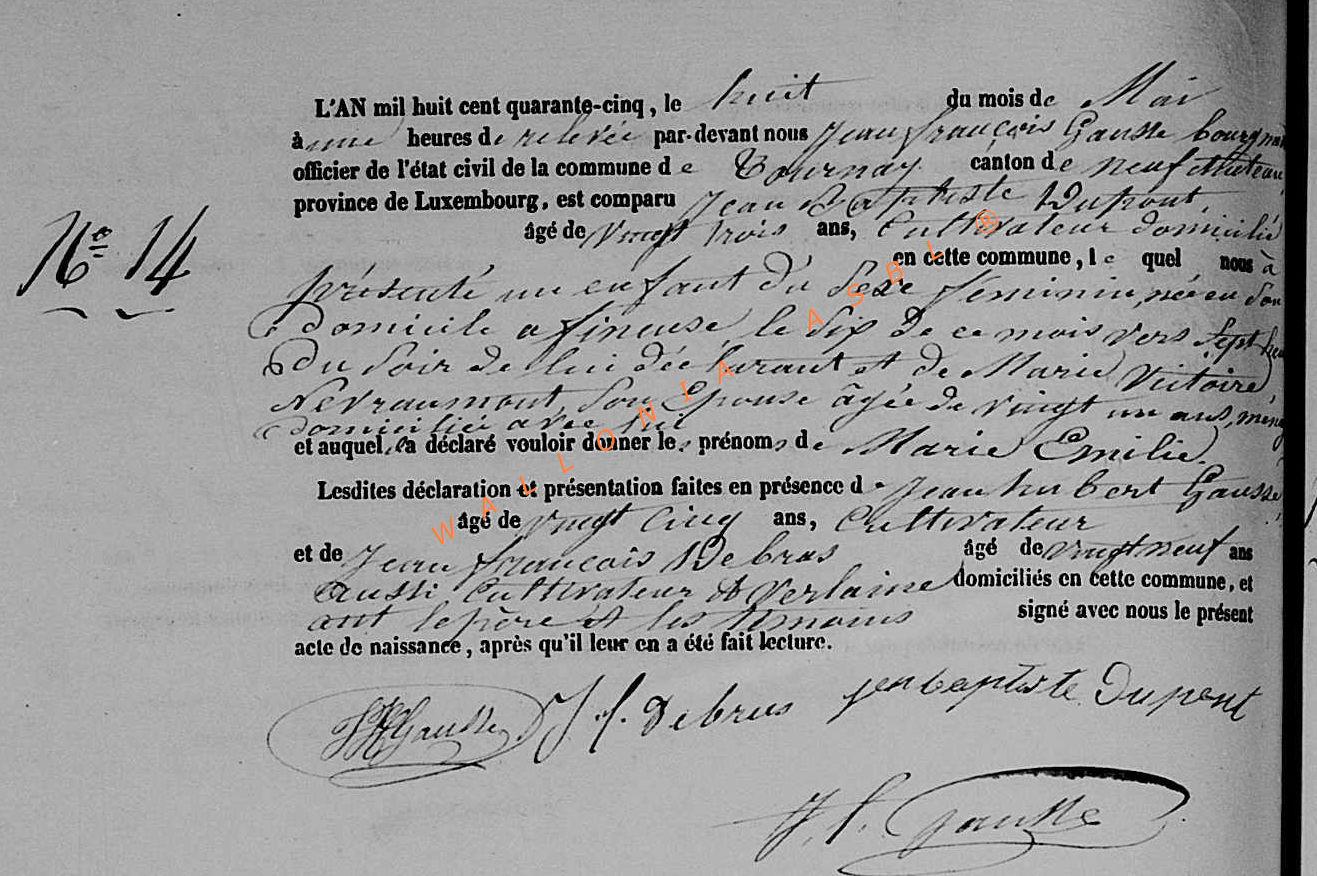 L'AN mil huit cent quarante-cinq, le huit du mois de Mai
à une heures de relevée par-devant nous Jean françois Gausse bourgm
officier de l'état civil de la commune de Tournay canton de neufchateau
province de Luxembourg, est comparu Jean Baptiste Dupont,
âgé de vingt trois ans, Cultivateur domicilié
en cette commune, le quel nous à
N° 14
présenté un enfant du Sexe feminin, née en Son
domicile a fineuse, le Six de ce mois vers Sept heu
du Soir de lui déclarant et de Marie Victoire
Nevraumont, Son Epouse âgée de vingt un ans, ménag
domiciliée avec lui
et auquel il a déclaré vouloir donner les prénoms de Marie Emilie.
Lesdites déclaration et présentation faites en présence de Jean hubert Gausse,
âgé de vingt Cinq ans, Cultivateur
et de Jean françois Debras âgé de vingt neuf ans
aussi Cultivateur A Verlaine domiciliés en cette commune, et
ont le père et les témoins signé avec nous le présent
acte de naissance, après qu'il leur en a été fait lecture.
Gausse J. f. Debras jean baptiste Dupont
J. f. Gausse
WALLONIA ASBL ®